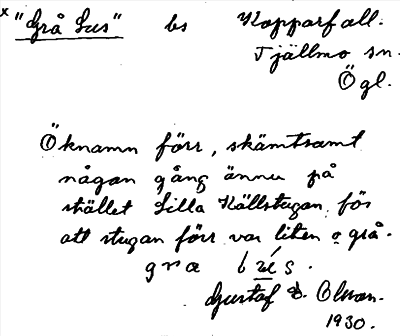 x "Grå Lus" bs Kopparfall.
Tjällmo sn.
Ögl.
Öknamn förr, skämtsamt
någon gång ännu på
stället Lilla Källstugan, för
att stugan förr var liten o grå.
gra
Gustaf Olson.
1930.